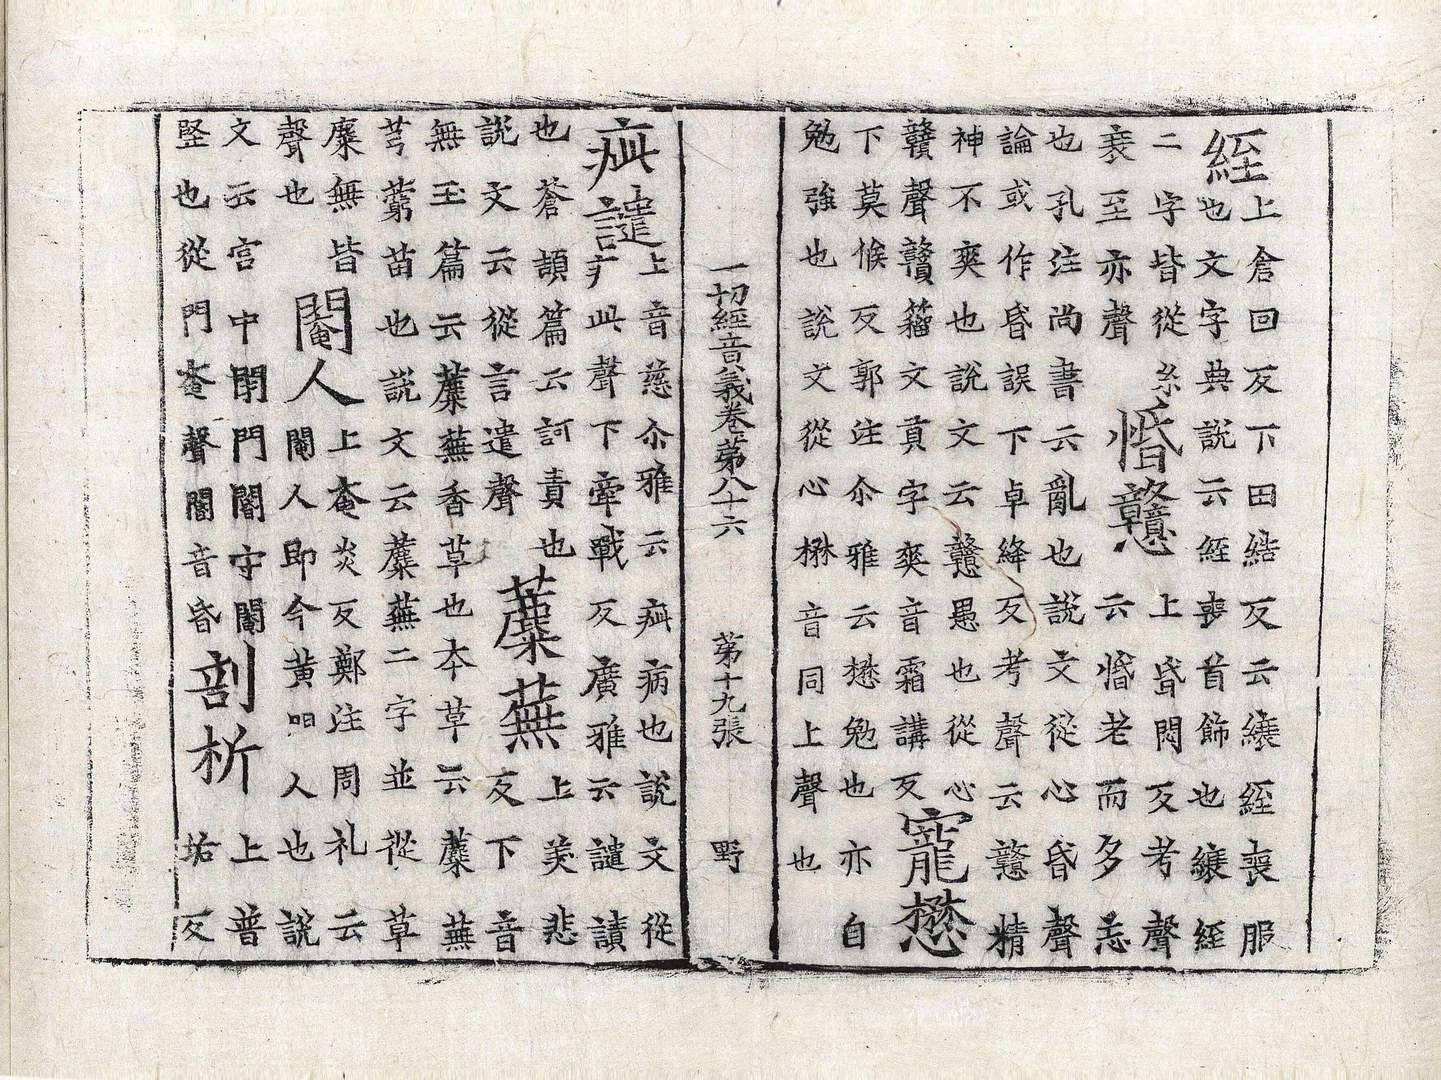 絰上倉回反下田結反云縗絰喪服
也文字典說云絰喪首飾也縗絰
二字皆從糸
衰至亦聲
惛戇上昏悶反考聲
云惛老而多恙
也孔注尚書云亂也說文從心昏聲
論或作昏誤下卓絳反考聲云戇精
神不爽也說文云戇愚也從心
贛聲贛籀文貢字爽音霜講反
寵懋
下莫候反郭注尒雅云懋勉也亦自
勉強也說文從心楙音同上聲也
一切經音義卷第八十六 第十九張 野
疵譴上音慈尒雅云疵病也說文從
疒此聲下牽戰反廣雅云譴讀
也蒼頡篇云訶責也
說文云從言遣聲
蘪蕪上美悲
反下音
無玉篇云蘪蕪香草也本草云蘪蕪
芎藭苗也說文云蘪蕪二字並從草
麋無皆
聲也
閹人上奄炎反鄭注周礼云
閹人即今黃門人也說
文云宮中閉門閽守閽
竪也從門奄聲閽音昏
剖析上普
垢反